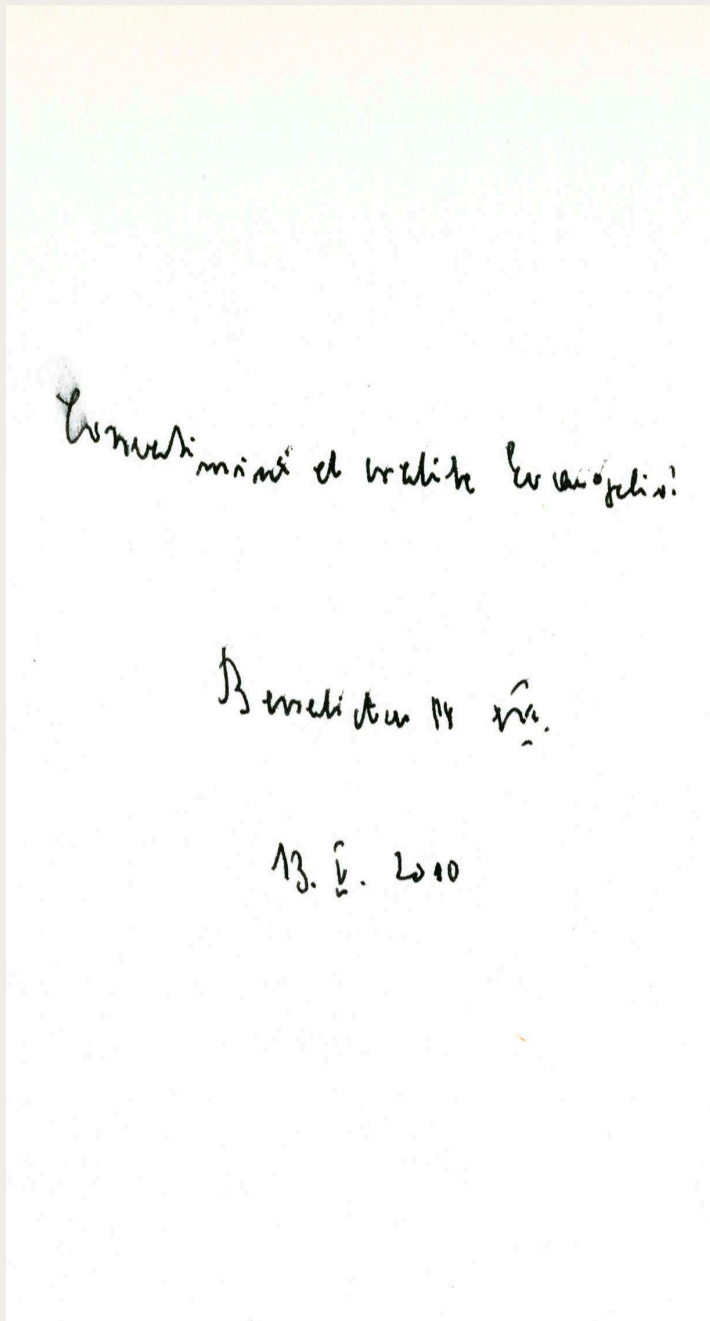 Convertimini et credite Evangelio!
Benedictus PP XVI.
13. V. 2010